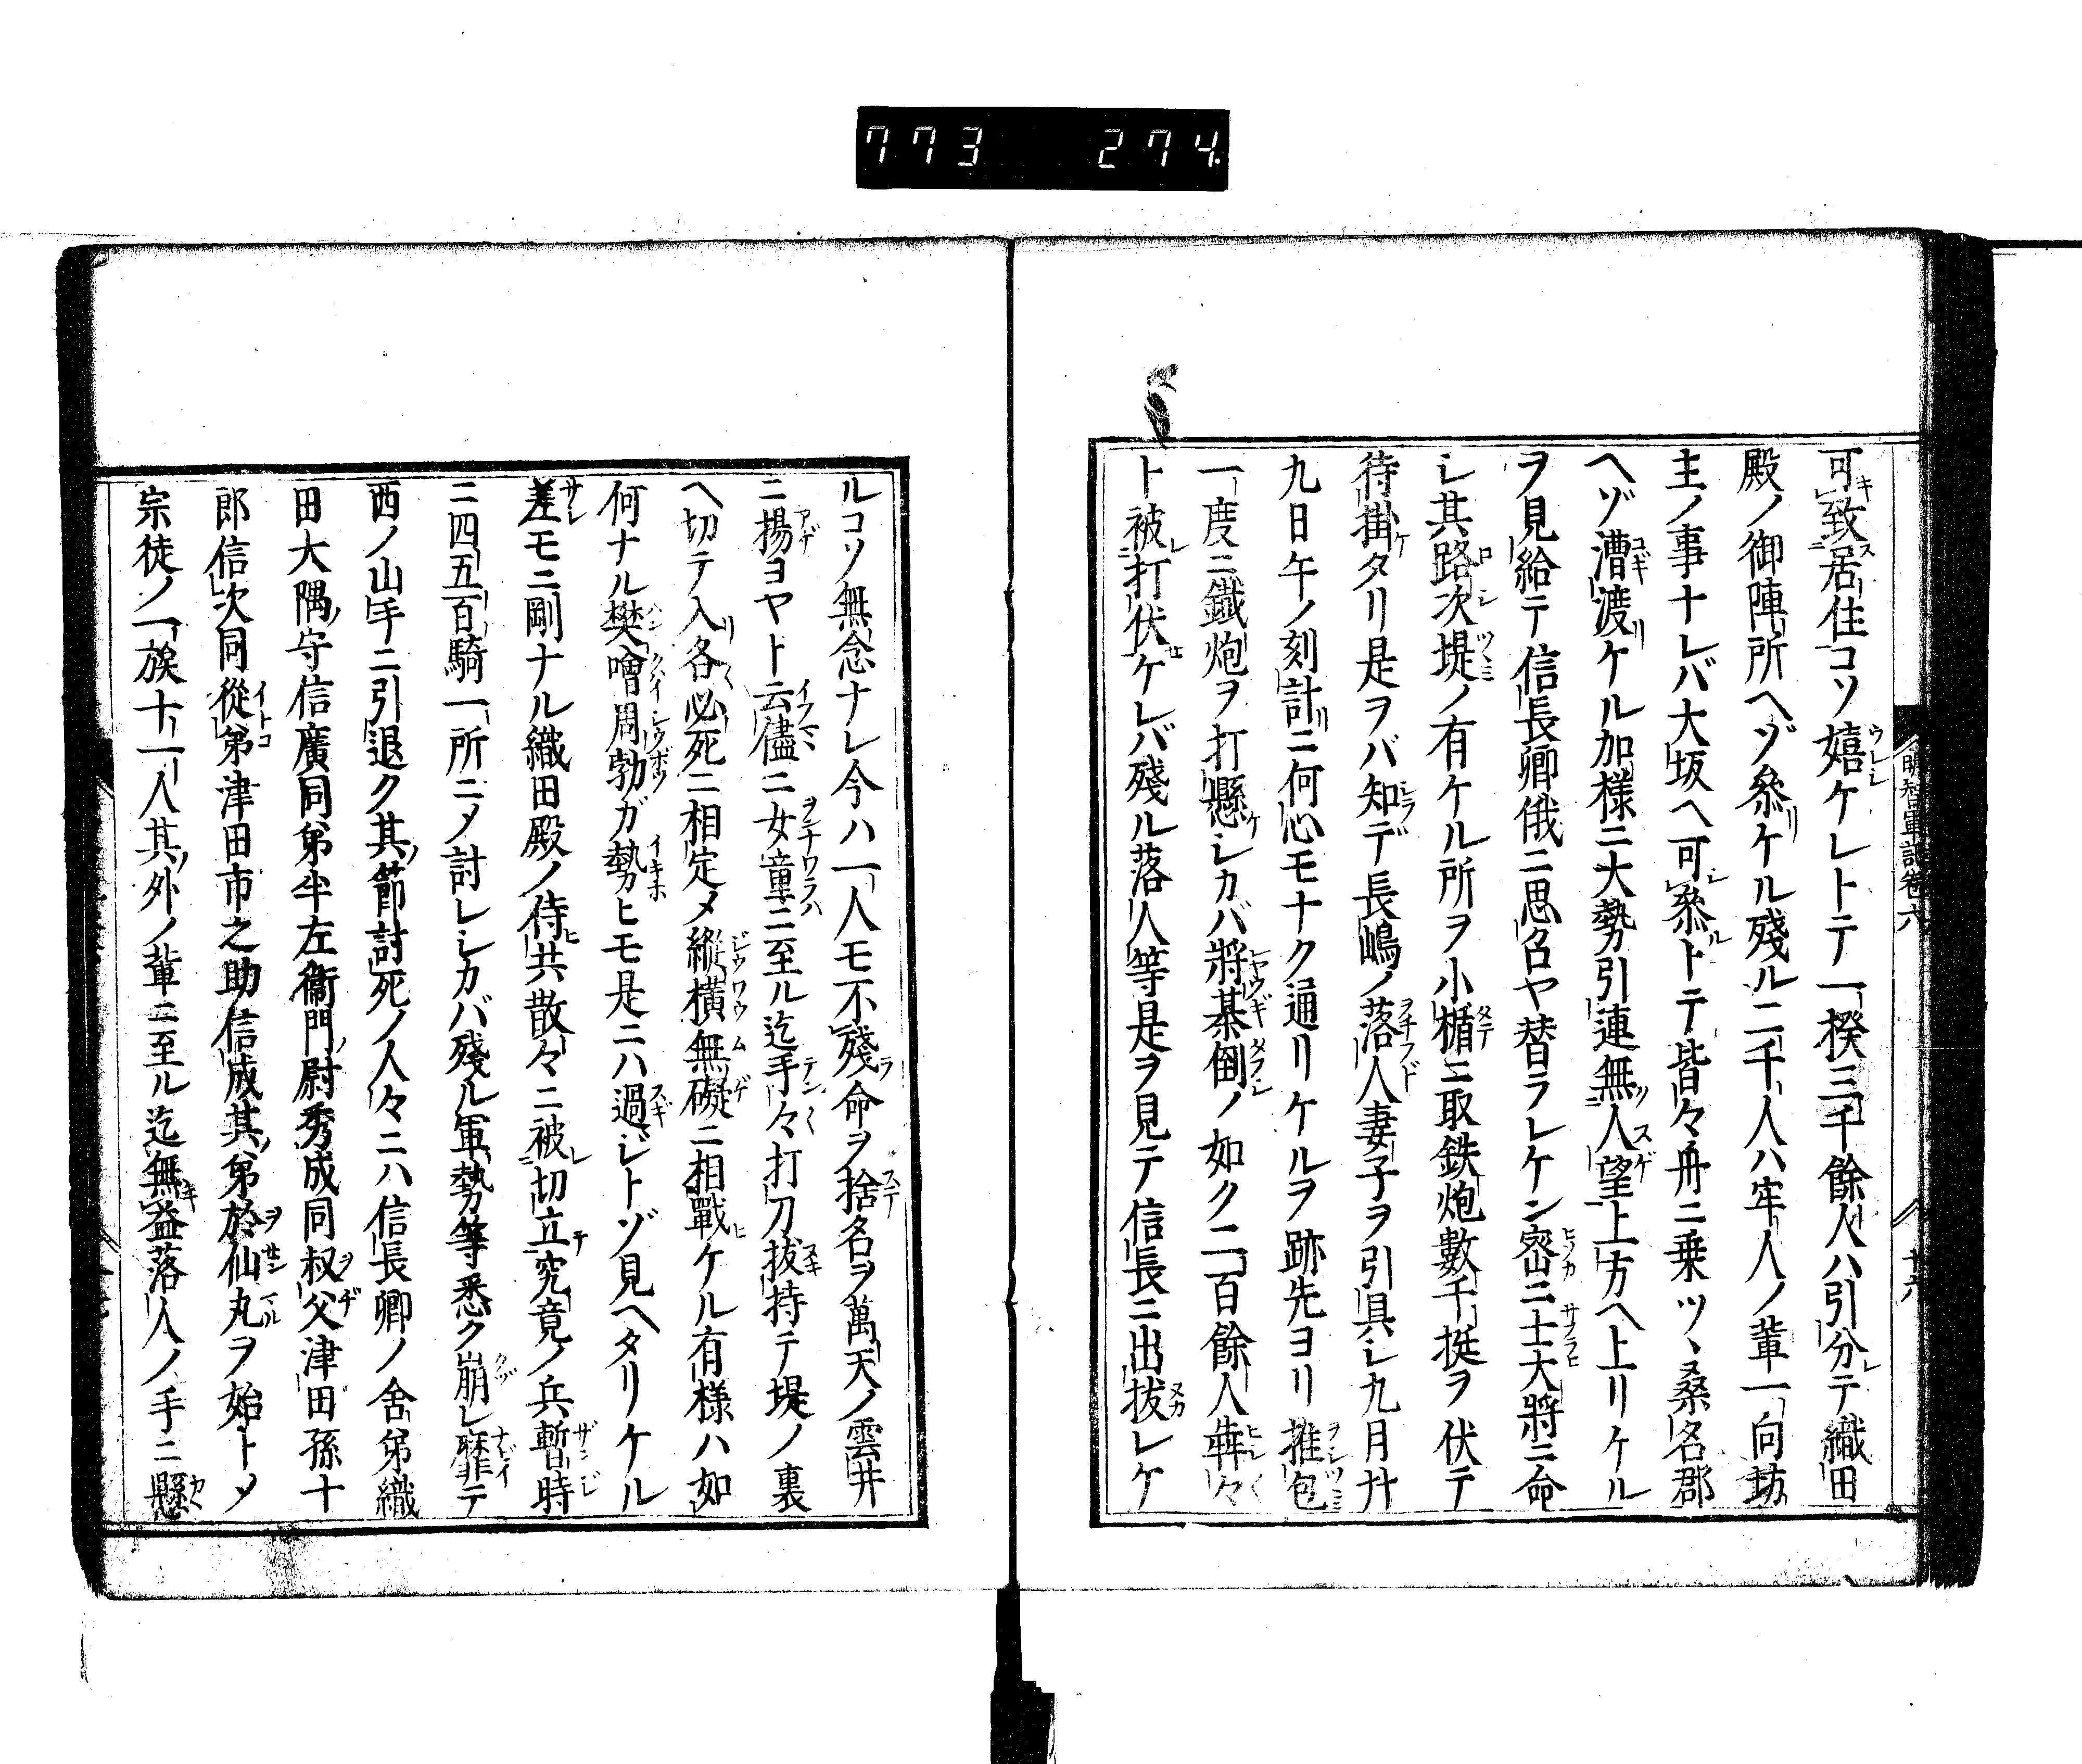 773 274.
明智軍記卷六 十六
可致居住コソ嬉ケレトテ一揆三千餘人ハ引分テ織田
殿ノ御陣所ヘゾ參ケル殘ル二千人ハ牢人ノ輩一向坊
主ノ事ナレバ大坂ヘ可參トテ皆々舟ニ乗ツヽ桑名郡
ヘゾ漕渡ケル加様ニ大勢引連無人望上方ヘ上リケル
ヲ見給テ信長卿俄ニ思召ヤ替ラレケン密ニ士大將ニ命
シ其路次堤ノ有ケル所ヲ小楯ニ取鉄炮數千挺ヲ伏テ
待掛タリ是ヲバ知デ長嶋ノ落人妻子ヲ引具シ九月廾
九日午ノ刻計ニ何心モナク通リケルヲ跡先ヨリ推包
一度ニ鐵炮ヲ打懸シカバ將棊倒ノ如ク二百餘人犇々
ト被打伏ケレバ殘ル落人等是ヲ見テ信長ニ出拔レケ
ルコソ無念ナレ今ハ一人モ不殘命ヲ捨名ヲ萬天ノ雲井
ニ揚ヨヤト云儘ニ女童ニ至ル迄手々打刀拔持テ堤ノ裏
ヘ切テ入各必死ニ相定メ縱横無礙ニ相戰ケル有様ハ如
何ナル樊噲周勃ガ勢ヒモ是ニハ過ジトゾ見ヘタリケル
差モニ剛ナル織田殿ノ侍共散々ニ被切立究竟ノ兵暫時
ニ四五百騎一所ニメ討レシカバ殘ル軍勢等悉ク崩レ靡テ
西ノ山手ニ引退ク其節討死ノ人々ニハ信長卿ノ舎弟織
田大隅守信廣同弟半左衞門尉秀成同叔父津田孫十
郎信次同從弟津田市之助信成其弟於仙丸ヲ始トメ
宗徒ノ一族十一人其外ノ輩ニ至ル迄無益落人ノ手ニ懸